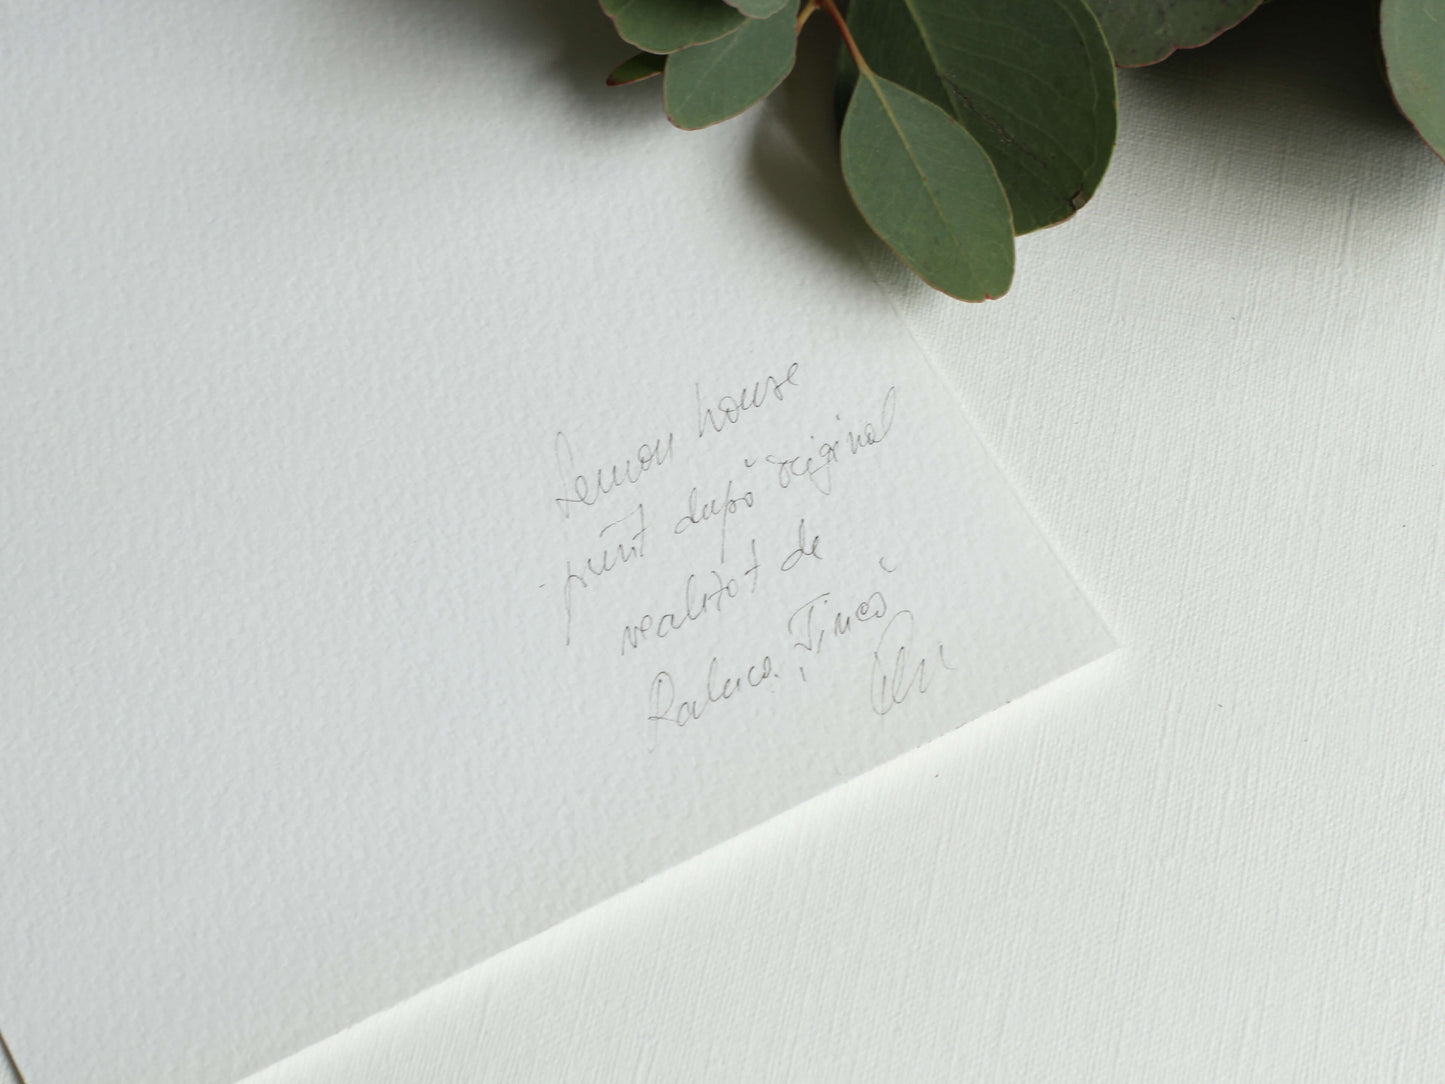 Lemon house
print după original
realizat de
Raluca Țincă